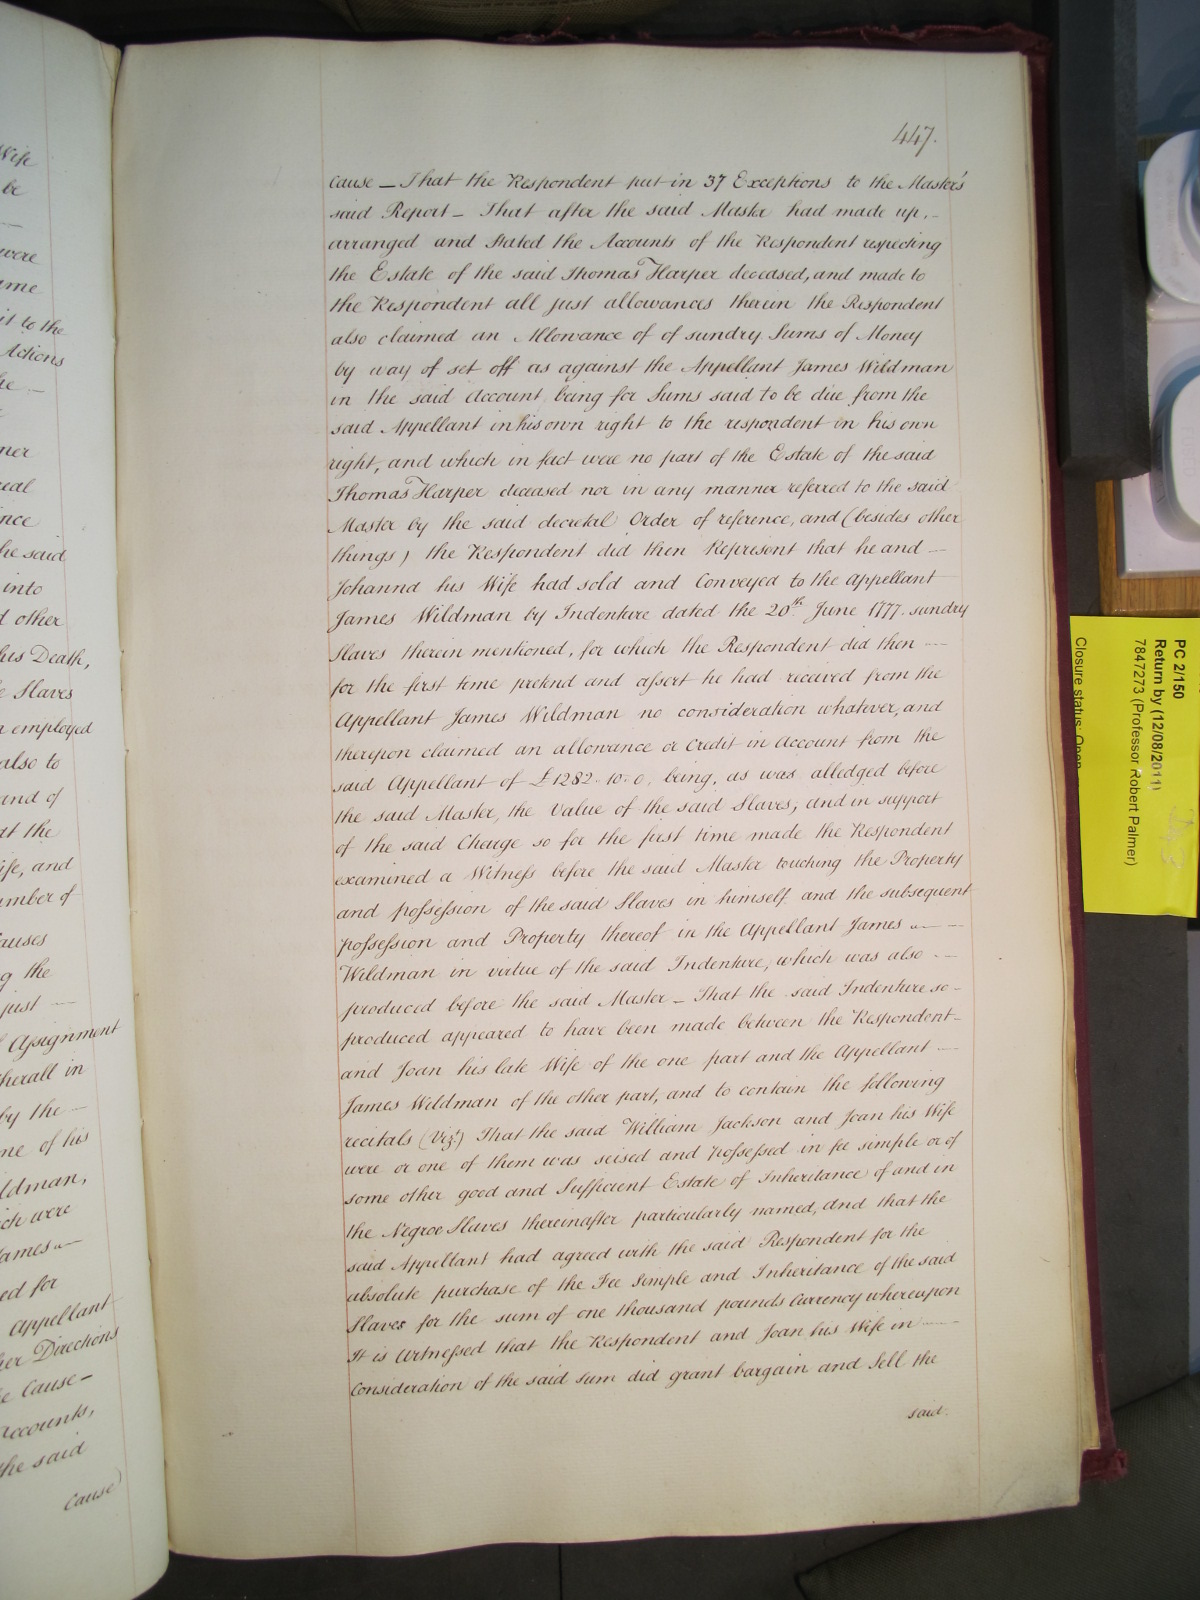 447.
cause — That the Respondent put in 37 Exceptions to the Master's
said Report — That after the said Master had made up, -
arranged and stated the Accounts of the Respondent respecting
the Estate of the said Thomas Harper deceased, and made to
the Respondent all just allowances therein the Respondent
also claimed an Allowance of of sundry Sums of Money
by way of set off as against the Appellant James Wildman
in the said Account being for Sums said to be due from the
said Appellant in his own right to the respondent in his own
right, and which in fact were no part of the Estate of the said
Thomas Harper deceased nor in any manner referred to the said
Master by the said decretal Order of reference, and (besides other
things) the Respondent did then Represent that he and —
Johanna his Wife had sold and Conveyed to the Appellant
James Wildman by Indenture dated the 20th June 1777. sundry
Slaves therein mentioned, for which the Respondent did then —
for the first time pretend and assert he had received from the
Appellant James Wildman no consideration whatever, and
therepon claimed an allowance or Credit in Account from the
said Appellant of £1282..10..0, being, as was alledged before
the said Master, the Value of the said Slaves, and in support
of the said Charge so for the first time made the Respondent
examined a Witness before the said Master touching the Property
and possession of the said Slaves in himself and the subsequent
possession and Property thereof in the Appellant James —
Wildman in virtue of the said Indenture, which was also —
produced before the said Master — That the said Indenture so -
produced appeared to have been made between the Respondent -
and Joan his late Wife of the one part and the Appellant —
James Wildman of the other part, and to contain the following
recitals (Vizt) That the said William Jackson and Joan his Wife
were or one of them was seised and possessed in fee simple or of
some other good and Sufficient Estate of Inheritance of and in
the Negroe Slaves thereinafter particularly named, and that the
said Appellant had agreed with the said Respondent for the
absolute purchase of the Fee Simple and Inheritance of the said
Slaves for the sum of one thousand pounds Currency whereupon
It is Witnessed that the Respondent and Joan his Wife in —
Consideration of the said sum did grant bargain and Sell the
said.
Wife
be
were
it to the
Actions
he said
into
other
his Death,
Slaves
employed
also to
and of
at the
and
of
the
just —
Assignment
in
by the —
of his
were
for
Appellant
Directions
Cause —
Accounts,
the said
Cause
PC 2/150
Return by (12/08/2011)
7847273 (Professor Robert Palmer)
Closure status: Open